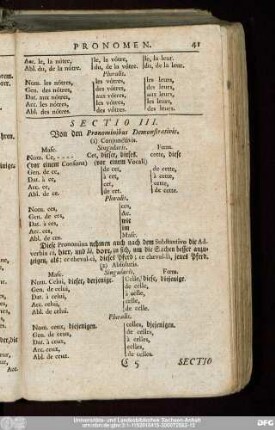 PRONOMEN. 41
Acc. le, la nôtre, le, la vôtre, le, la leur.
Abl. du, de la nôtre. du, de la vôtre. du, de la leur.
Pluralis.
Nom. les nôtres, les vôtres, les leurs,
Gen. des nôtres, des vôtres, des leurs,
Dat. aux nôtres, aux vôtres, aux leurs,
Acc. les nôtres, les vôtres, les leurs,
Abl. des nôtres des vôtres des leurs.
SECTIO III.
Von den Pronominibus Demonstrativis.
(1) Conjunctiva.
Masc. Singularis. Fœm.
Nom. Ce, Cet, dieser, dieses. cette, diese
(vor einem Consona) (vor einem Vocali)
Gen. de ce, de cet, de cette,
Dat. à ce, à cet, à cette,
Acc. ce, cet, cette,
Abl. de ce, de cet, de cette.
Pluralis.
Nom. ces,
Gen. de ces,
Dat. à ces,
Acc. ces,
Abl. de ces.
Diese Pronomina nehmen auch nach dem Substantivo die Ad-
verbia ci, hier, und là, dort, zu sich, um die Sachen besser anzu-
zeigen, als: ce cheval-ci, dieses Pferd; ce cheval-là, jenes Pferd.
(2) Absoluta.
Masc. Singularis. Fœm.
Nom. Celui, dieser, derjenige. Celle, diese, diejenige.
Gen. de celui, de celle,
Dat. à celui, à celle,
Acc. celui, celle,
Abl. de celui, de celle.
Pluralis.
Nom. ceux, diejenigen. celles, diejenigen.
Gen. de ceux, de celles,
Dat. à ceux, à celles,
Acc. ceux, celles,
Abl. de ceux. de celles.
C 5 SECTIO
Universitäts- und Landesbibliothek Sachsen-Anhalt